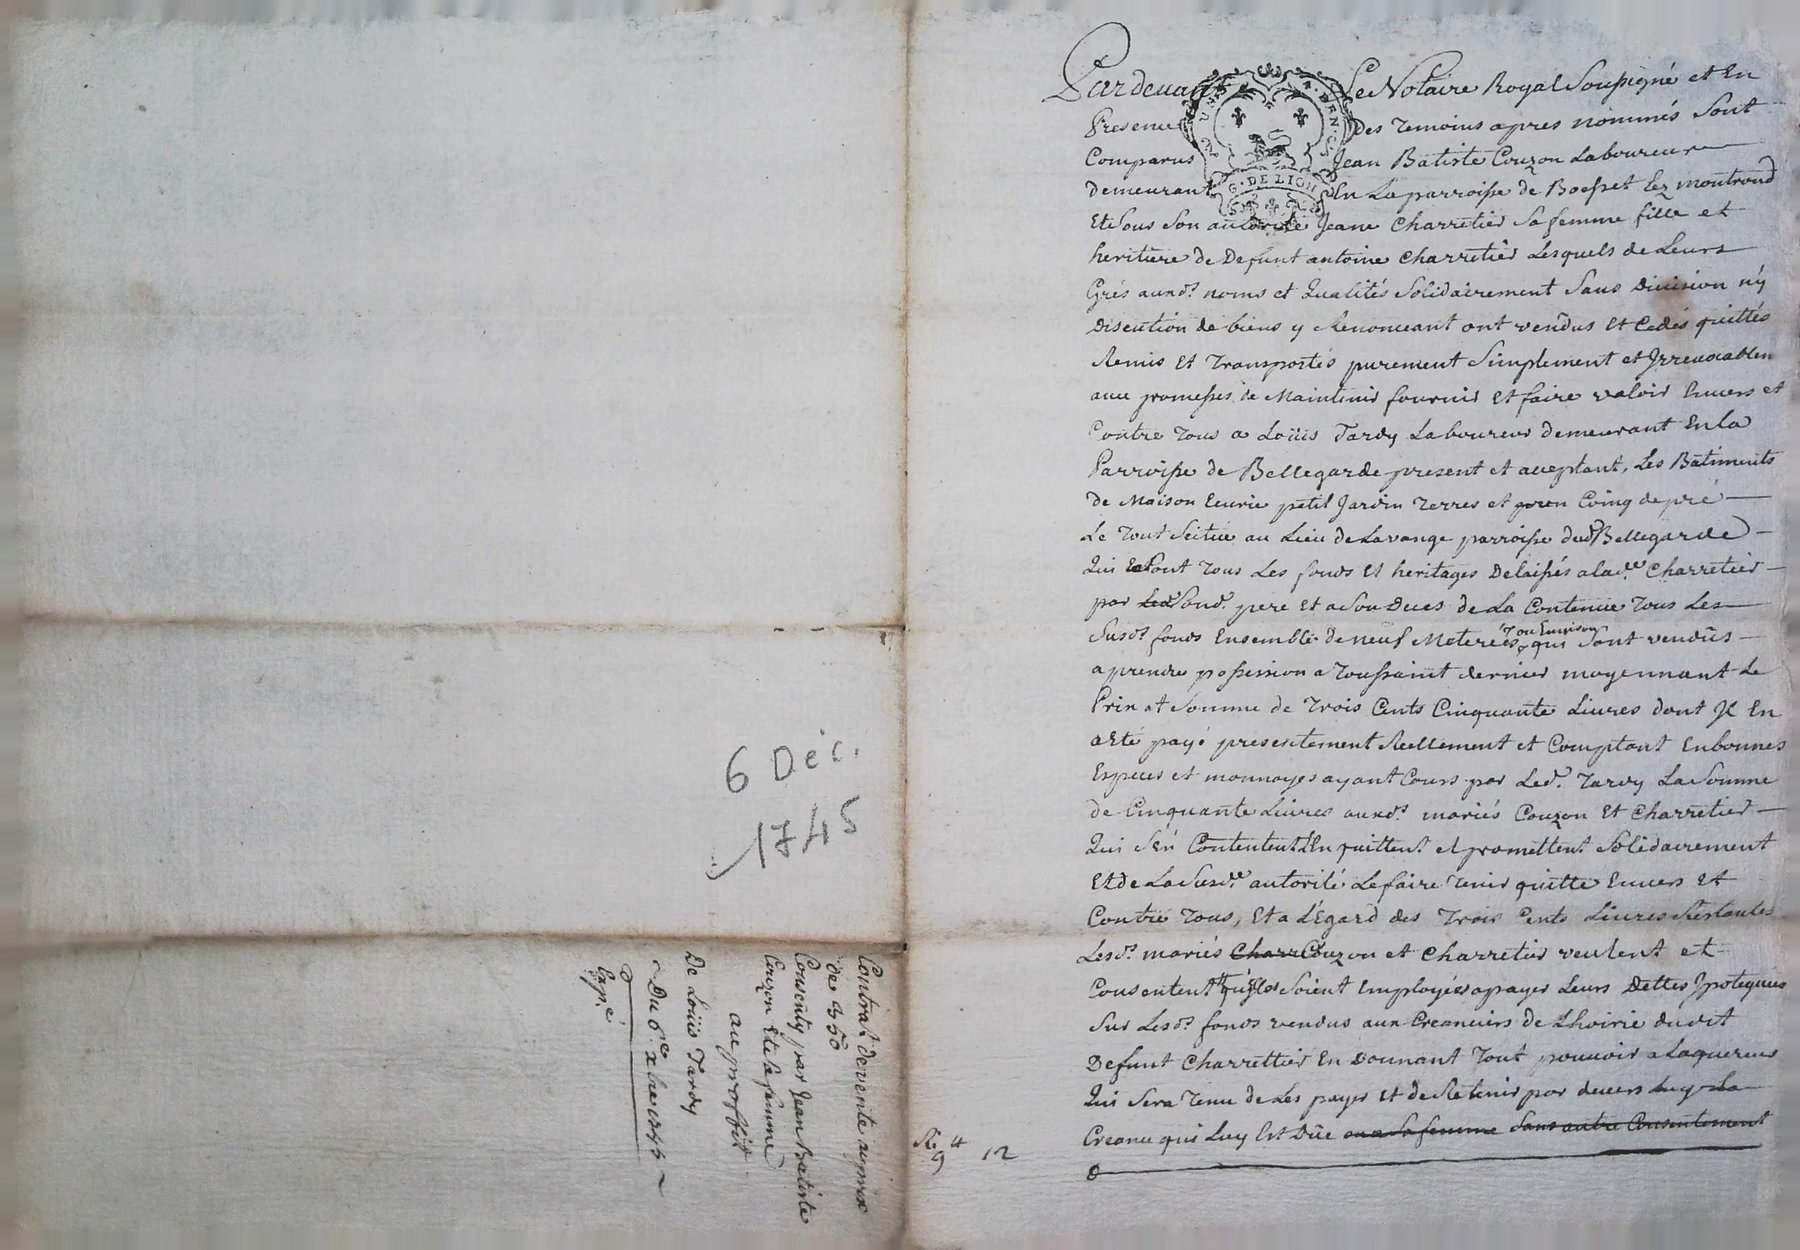 6 Déc.
1745
Contrat de vente au prix
de 350
Consenty par Jean Batiste
Couzon Et Sa femme
au proffit
De Loüis Tardy
Du 6e xbre 1745
Exp.é
Pardevant Le Notaire Royal Soussigné et En
Presence Des Temoins apres nommés Sont
Comparus Jean Batiste Couzon Laboureur
demeurant En La parroisse de Boësset Lez montrond
Et Sous Son autorité Jeane Charretier Sa femme fille et
heritiere de Defunt antoine Charretier Lesquels de Leurs
Grés auxd.s noms et Qualités Solidairement Sans Division n'y
Discution de biens y Renonceant ont vendus Et Cedés quittés
Remis Et Transportés purement Simplement et Irrevocablem
avec promesses de Maintenir fournir Et faire valoir Envers et
Contre Tous a Loüis Tardy Laboureur demeurant En la
Parroisse de Bellegarde present et acceptant, Les Batiments
de Maison Ecurie petit Jardin Terres et Coing de pré
Le Tout Scitué au Lieu de Lavange parroisse dud. Bellegarde
Qui Sont Tous Les fonds Et heritages Delaissés a lad.e Charretier
par Sond. pere Et a Son Deces de La Contenue Tous Les
Susd.s fonds Ensemble de neuf Meterées ou Environ qui Sont vendus
a prendre possession a Toussaint dernier moyennant Le
Prix et Somme de Trois Cents Cinquante Livres dont Il En
a Eté payé presentement Reellement et Comptant En bonnes
Especes et monnoyes ayant Cours par Led. Tardy La Somme
de Cinquante Livres auxd.s mariés Couzon Et Charretier
Qui S'En Contentent L'En quittent et promettent Solidairement
Et de La Susd.e autorité Le faire Tenir quitte Envers Et
Contre Tous, Et a L'Egard des Trois Cents Livres Restantes
Lesd.s mariés Charr Couzon et Charretier veulent et
Consentent qu'elles Soient Employées a payer Leurs Dettes Ipotequées
Sur Lesd.s fonds vendus aux Creanciers de L'hoirie dudit
Defunt Charrettier En Donnant Tout pouvoir a Laquereur
Qui Sera Tenu de Les payer Et de Retenir par devers Luy La
Creance qui Luy Est Düe ou a Sa femme Sans autre Consentement
9 12
G. DE LION